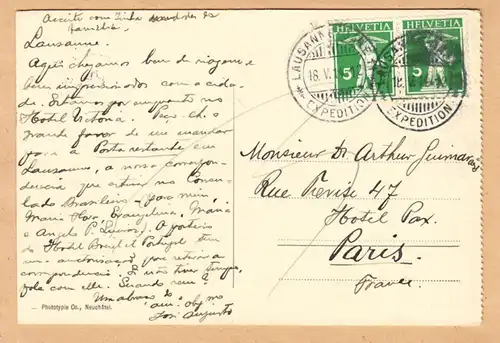 Acceite com Zinha saudades da
familia.
Lausanne.
Aqui chegamos bem de viagem e
bem impressionados com a cida-
de. Estamos por emquanto no
Hotel Victoria. Peço-lh. o
grande favor de me mandar
para a Posta restante em
Lausanne, a nossa correspon-
dencia que estiver no Consu-
lado Brasileiro - por mim,
Maria Flora Evangelina, Maria
e Angelo P.
Hotel Brésil et Portugal tem
uma autorisação por retirar a
correspondencia. E não tive tempo,
fale com elle. Quando vem?
Um abraço do
am.º obg.mo
José Augusto
Phototypie Co., Neuchâtel.
HELVETIA
5
HELVETIA
5
LAUSANNE
18.V.
EXPEDITION
LAUSANNE
18.
EXPEDITION
Monsieur Dr. Arthur Guimarães
Rue Trevise 47
Hotel Pax.
Paris.
France.